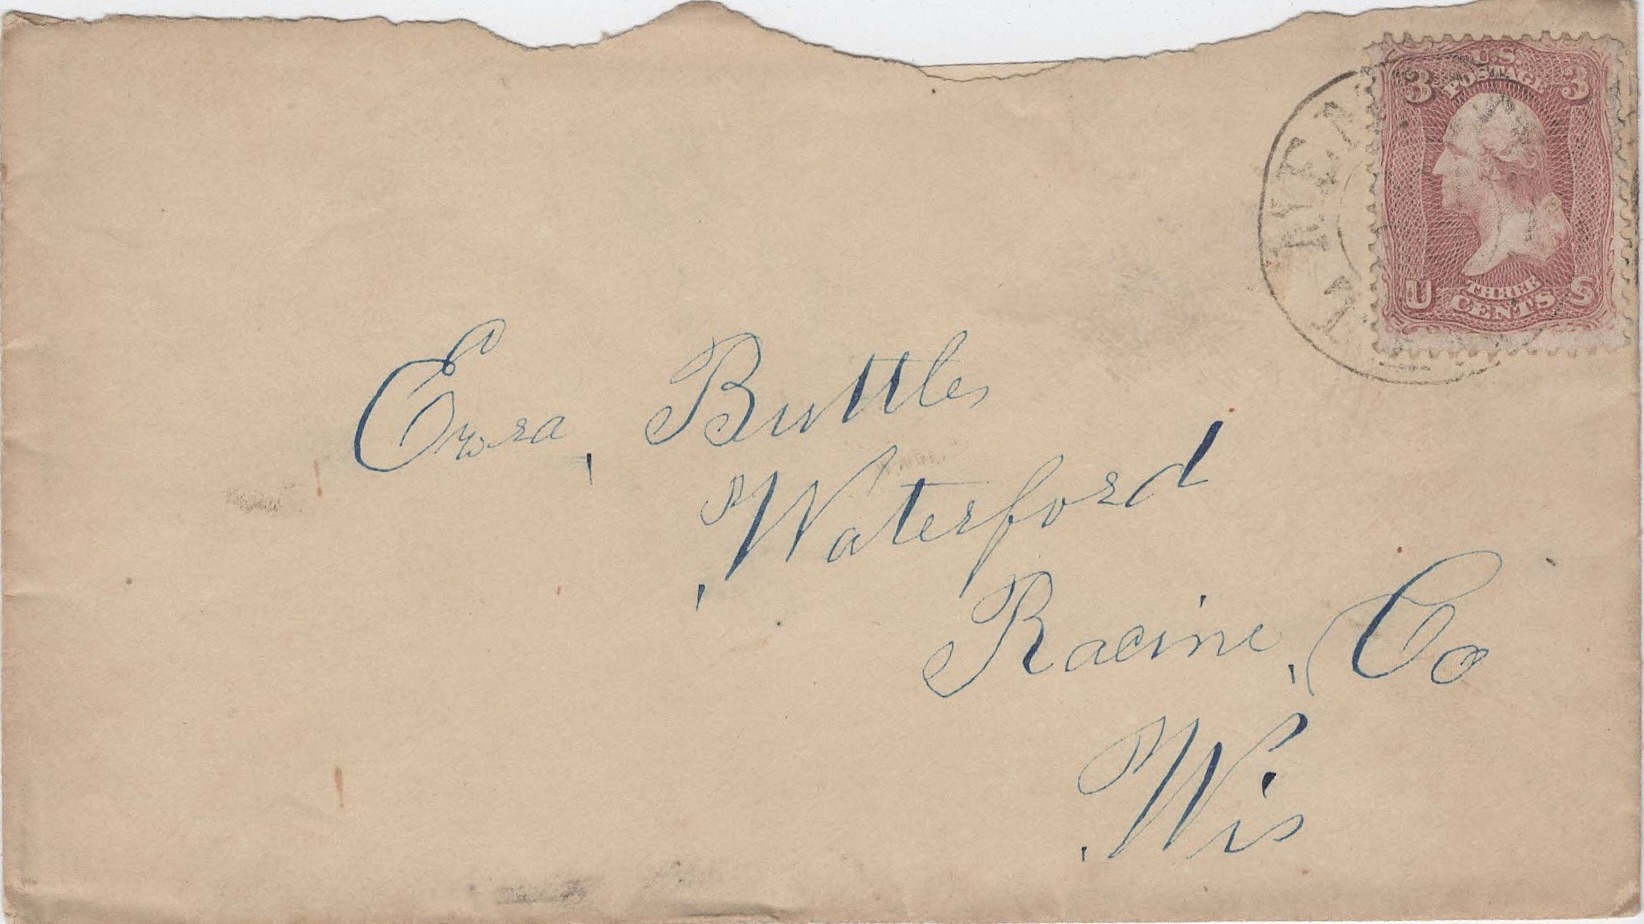 3 U.S. 3
POSTAGE
U THREE S
CENTS
Ezra, Buttles
Waterford
Racine, Co
Wis